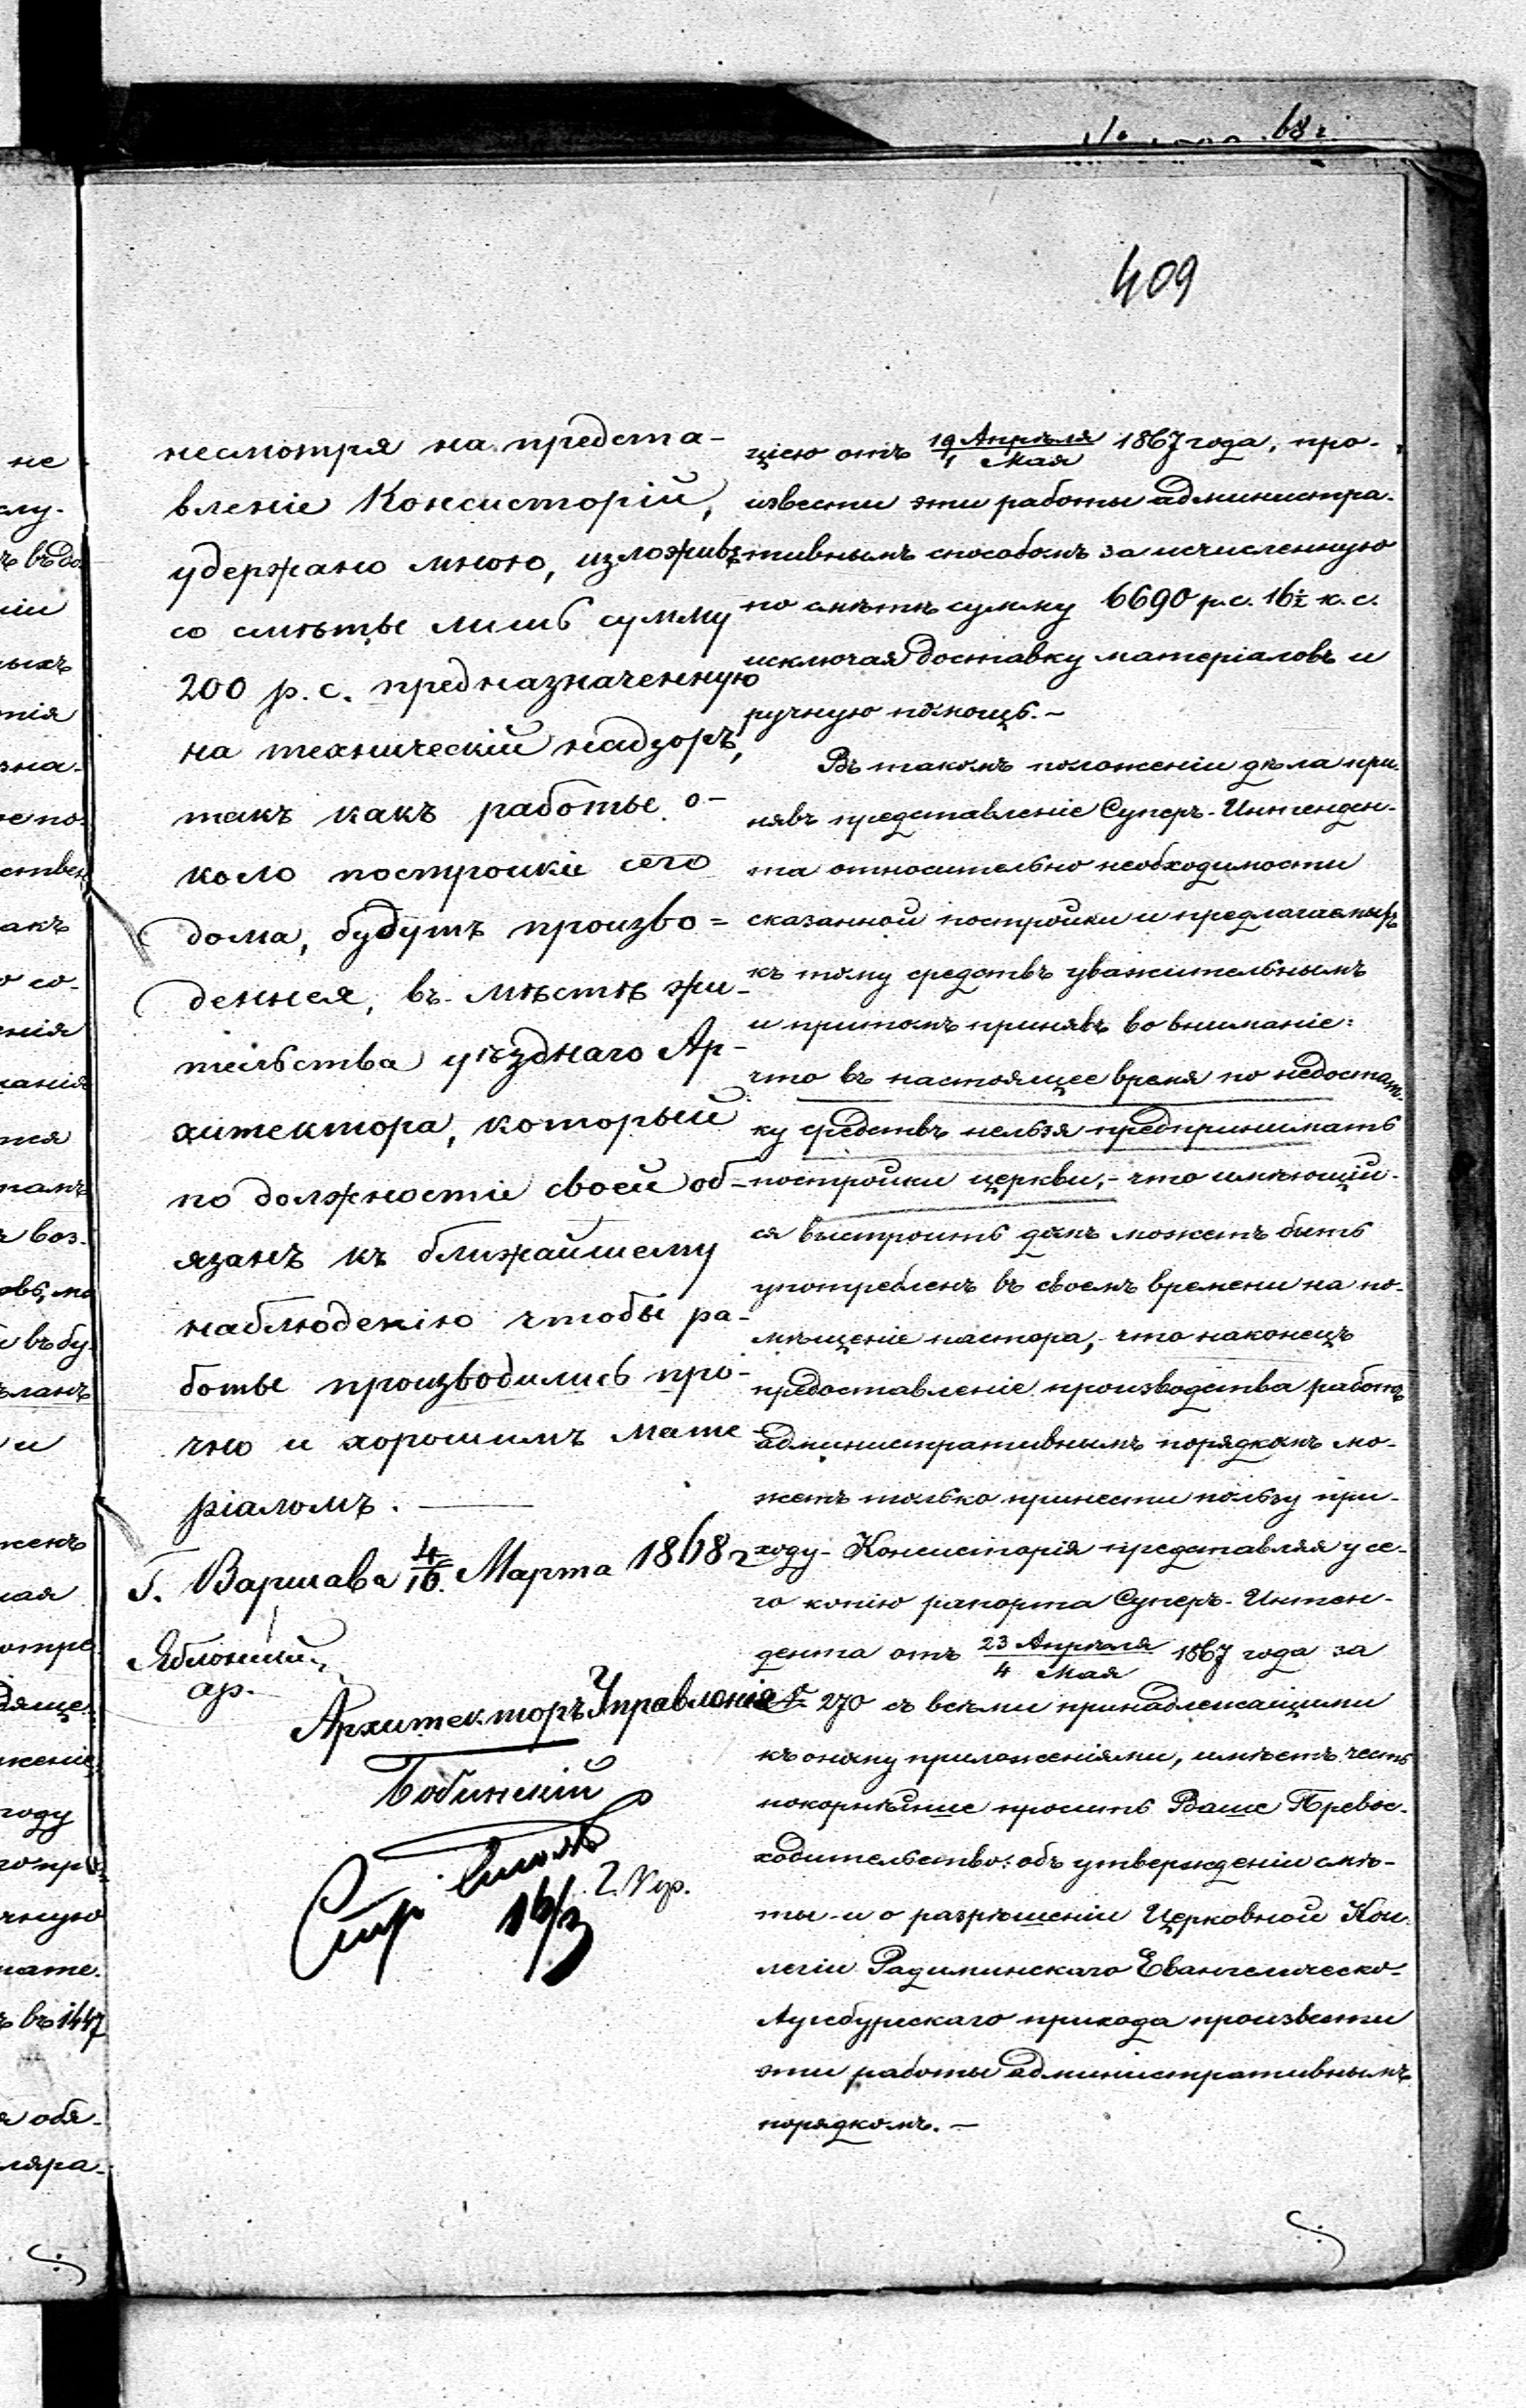 409
несмотря на предста-
вленіе Консисторіи,
удержано мною, изложивъ
со смѣты лишь сумму
200 р. с. предназначенную
на техническій надзоръ,
такъ какъ работы о-
коло постройки сего
дома, будутъ произво=
денныя, въ мѣстѣ жи-
тельства уѣзднаго Ар-
хитектора, который
по должности своей об-
язанъ къ ближайшему
наблюденію чтобы ра-
боты производились про-
чно и хорошимъ мате
ріаломъ. —
Г. Варшава 4/16. Марта 1868 г
ар.
Архитекторъ Управленія
Бобинскій
16/3
цією отъ 19 Апрѣля/1 Мая 1867 года, про-
извести эти работы администра-
тивнымъ способомъ за исчисленную
по смѣтѣ сумму 6690 р. с. 16½ к. с.
исключая доставку матеріаловъ и
ручную помощь. —
Въ такомъ положеніи дѣла при-
нявъ представленіе Суперъ-Интенден-
та относительно необходимости
сказанной постройки и предлагаемыхъ
къ тому средствъ уважительнымъ
и притомъ принявъ во вниманіе:
что въ настоящее время по недостат-
ку средствъ нельзя предпринимать
постройки церкви, - что имѣющій-
ся выстроить домъ можетъ быть
употребленъ въ своемъ времени на по-
мѣщеніе пастора, - что наконецъ
предоставленіе производства работъ
административнымъ порядкомъ мо-
жетъ только принести пользу при-
ходу - Консисторія представляя у се-
го копію рапорта Суперъ-Интен-
дента отъ 23 Апрѣля/4 Мая 1867 года за
№ 270 съ всѣми принадлежащими
къ оному приложеніями, имѣетъ честь
покорнѣйше просить Ваше Превос-
ходительство: объ утвержденіи смѣ-
ты и о разрѣшеніи Церковной Кол-
легіи Радиминскаго Евангелическо-
Аугсбургскаго прихода произвести
эти работы административнымъ
порядкомъ. —